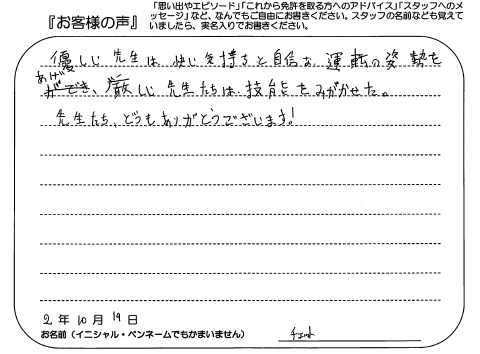 『お客様の声』
「思い出やエピソード」「これから免許を取る方へのアドバイス」「スタッフへのメ
ッセージ」など、なんでもご自由にお書きください。スタッフの名前なども覚えて
いましたら、実名入りでお書きください。
優しい先生は、はい気持ちと自信な運転の姿勢を
あげ
ができ、厳しい先生たちは技能をみがかせた。
先生たち、どうもありがとうございます!
2年10月19日
お名前(イニシャル・ペンネームでもかまいません)